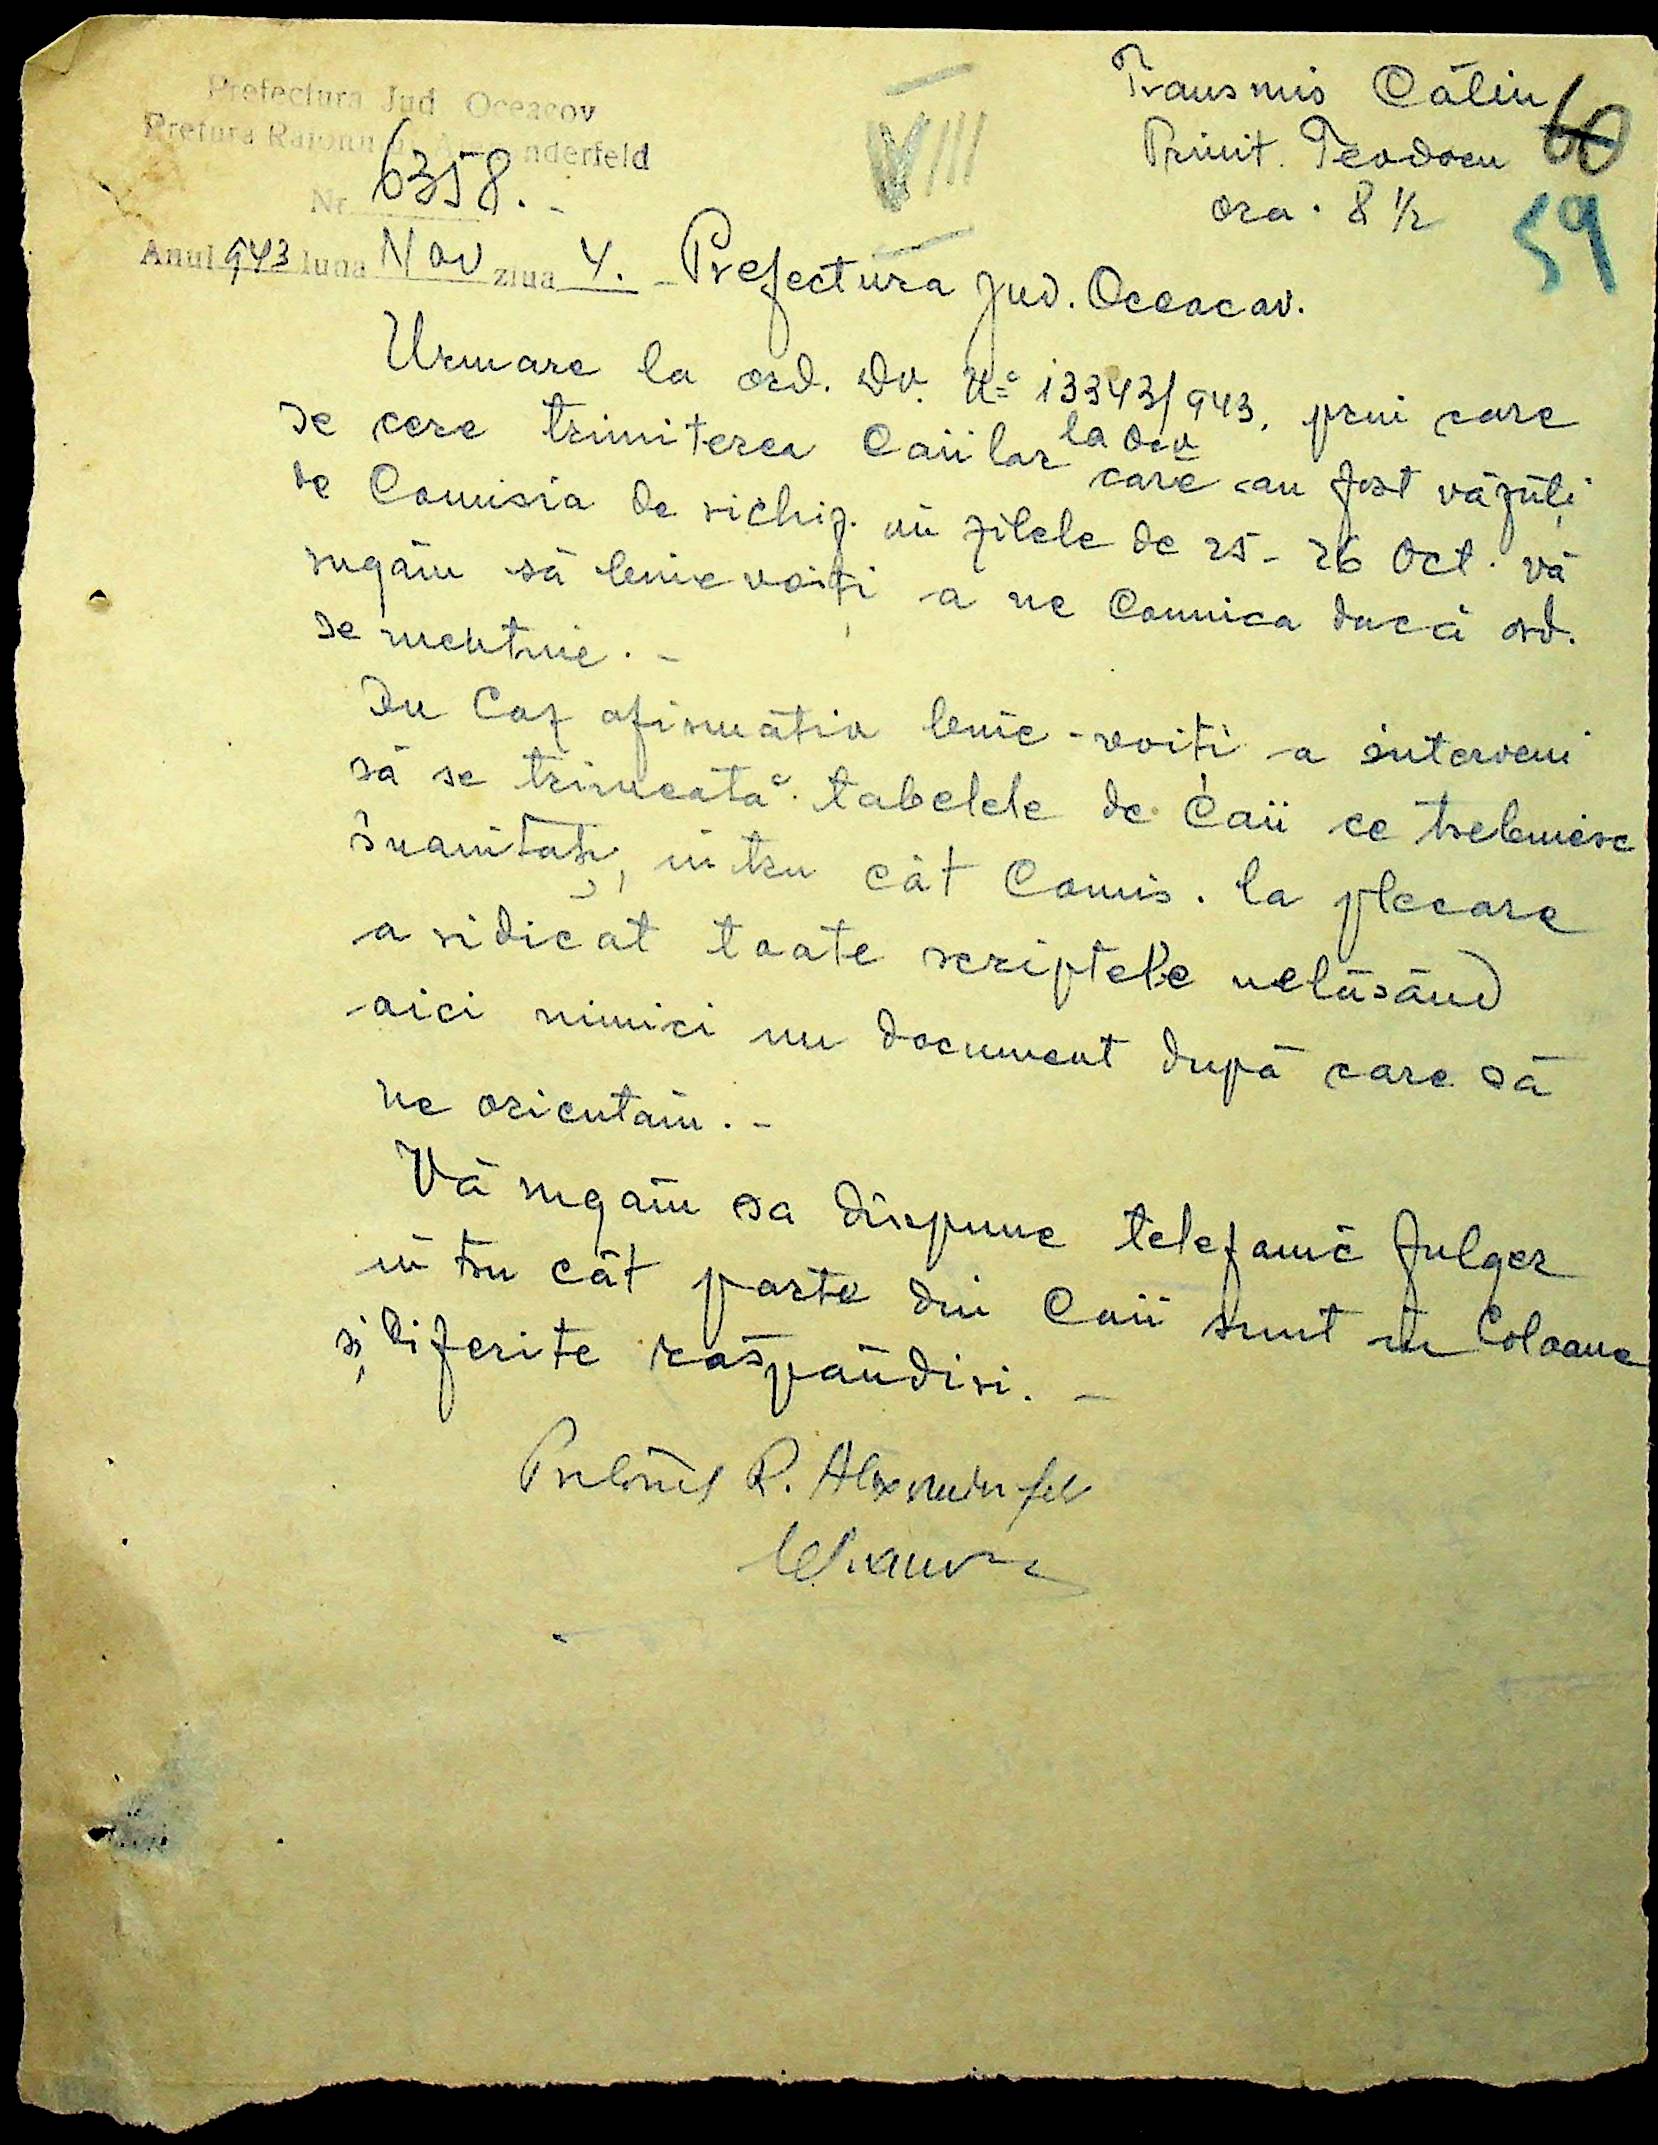 Prefectura Jud Oceacov
Pretura Raionului nderfeld
Nr 6358.-
Anul 943 luna Nov ziua 4.
VIII
Transmis Călin
Primit. Teodoru
ora. 8 1/2
60
59
Prefectura Jud. Oceacov.
Urmare la ord. Dv. No 13343/943, prin care
se cere trimiterea Caiilor la care au fost văzuți
de Comisia de richiz. în zilele de 25-26 Oct. vă
rugăm să binevoiți a ne Comnica dacă ord.
se mentine.-
In Caz afirmativ bine-voiti a interveni
să se trimeată tabelele de Caii ce trebuiesc
înaintați, în tru cât Comis. la plecare
a ridicat toate scriptele nelăsând
aici nimici un document după care să
ne orientăm.-
Vă rugăm sa dispune telefonic fulger
în tru cât parte din Caii sunt în Coloane
și diferite răspândiri.-
R. Alexanderfeld